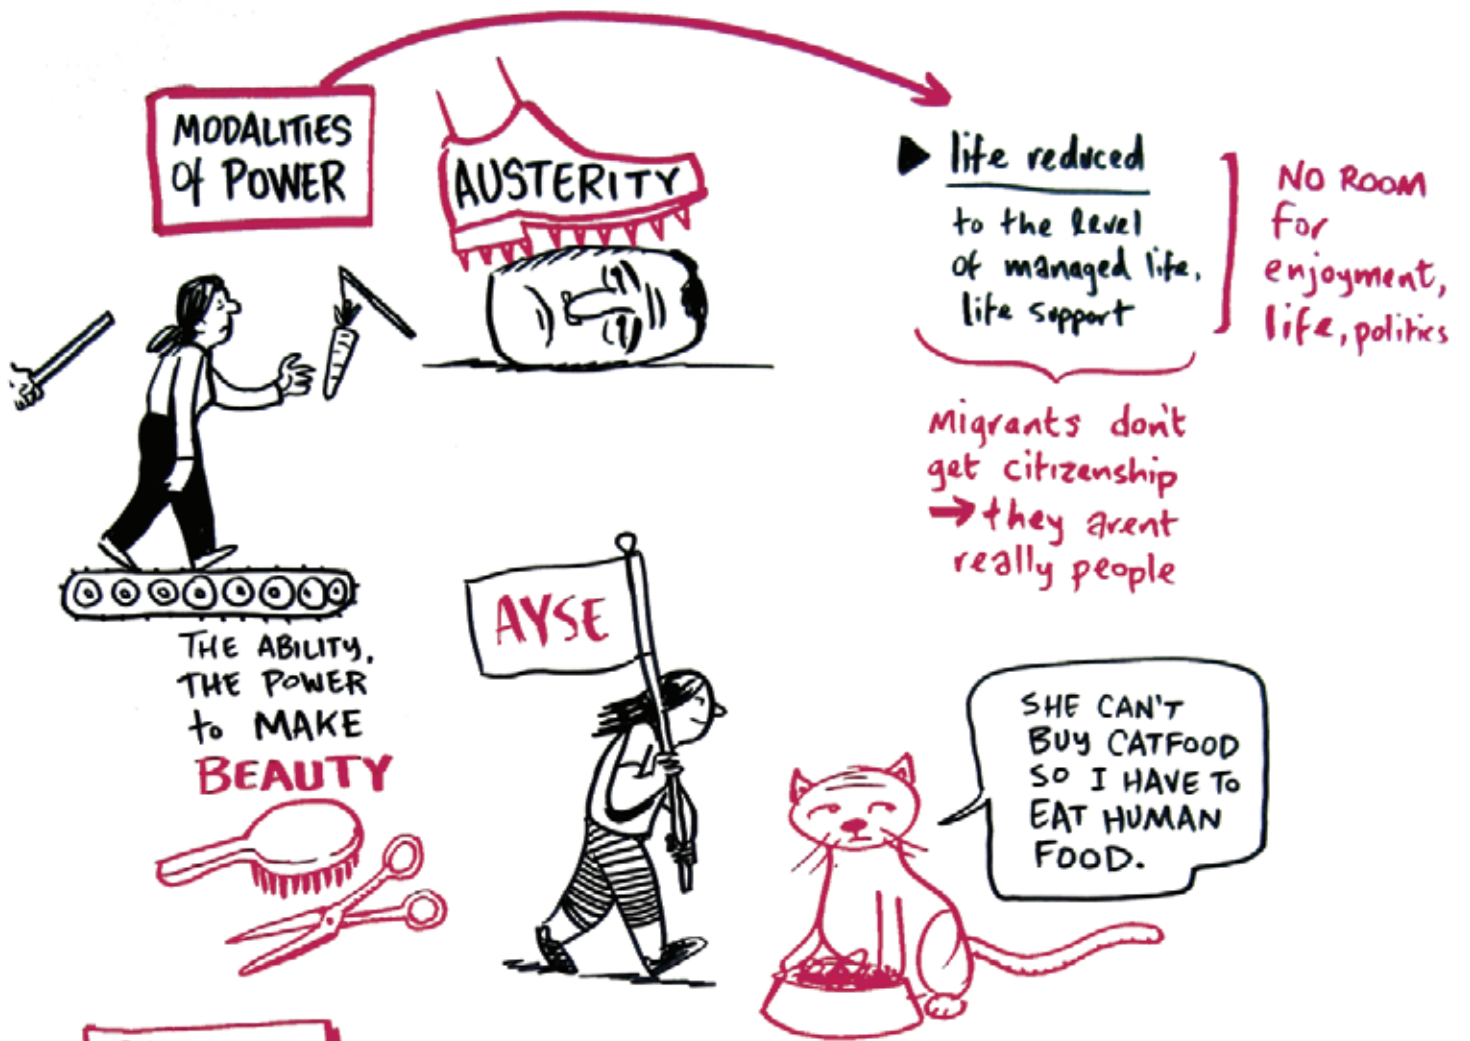 MODALITIES
of POWER
AUSTERITY
life reduced
to the level
of managed life,
life support
NO ROOM
for
enjoyment,
life, politics
Migrants don't
get citizenship
→ they arent
really people
THE ABILITY,
THE POWER
to MAKE
BEAUTY
AYSE
SHE CAN'T
BUY CATFOOD
SO I HAVE TO
EAT HUMAN
FOOD.